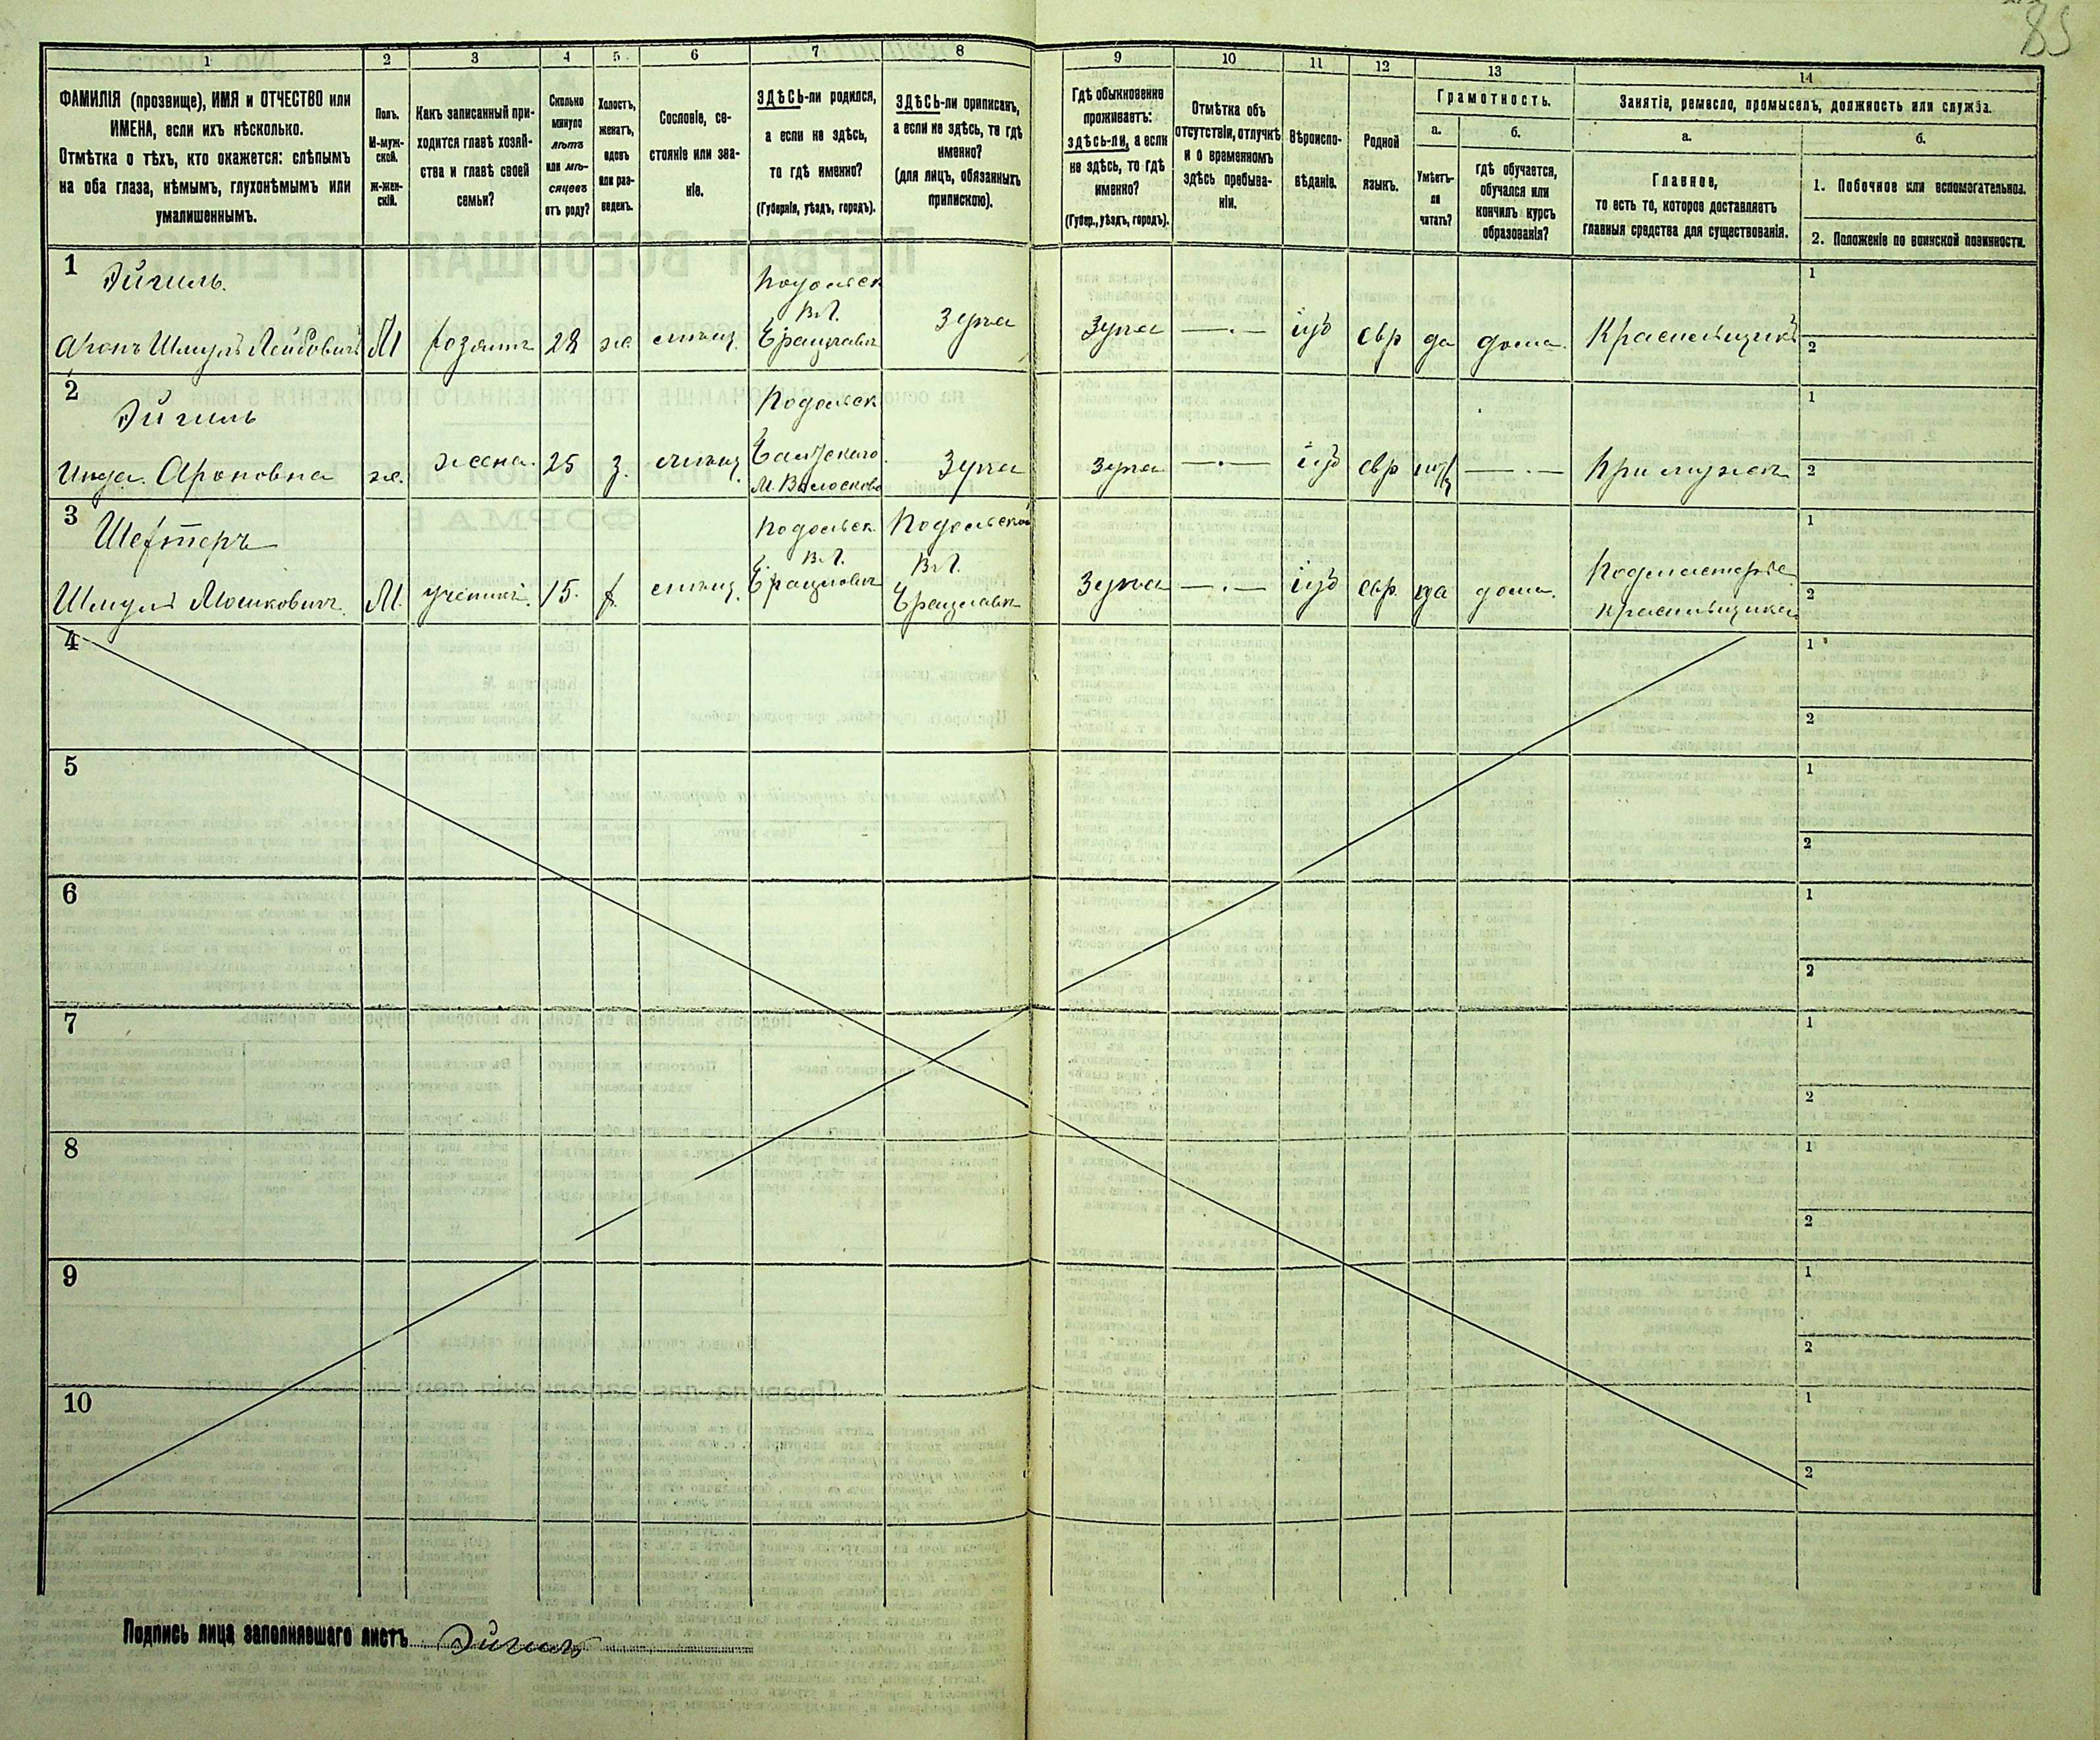 85
1
2
3
4
5
6
7
8
9
10
11
12
13
14
ФАМИЛІЯ (прозвище), ИМЯ и ОТЧЕСТВО или
ИМЕНА, если ихъ нѣсколько.
Отмѣтка о тѣхъ, кто окажется: слѣпымъ
на оба глаза, нѣмымъ, глухонѣмымъ или
умалишеннымъ.
Полъ.
М-муж-
ской.
Ж-жен-
скій.
Какъ записанный при-
ходится главѣ хозяй-
ства и главѣ своей
семьи?
Сколько
минуло
лѣтъ
или мѣ-
сяцевъ
отъ роду?
Холостъ,
женатъ,
вдовъ
или раз-
веденъ.
Сословіе, со-
стояніе или зва-
ніе.
ЗДѢСЬ-ли родился,
а если не здѣсь,
то гдѣ именно?
(Губернія, уѣздъ, городъ).
ЗДѢСЬ-ли приписанъ,
а если не здѣсь, то гдѣ
именно?
(для лицъ, обязанныхъ
припискою).
Гдѣ обыкновенно
проживаетъ:
здѣсь-ли, а если
не здѣсь, то гдѣ
именно?
(Губер., уѣздъ, городъ).
Отмѣтка объ
отсутствіи, отлучкѣ
и о временномъ
здѣсь пребыва-
ніи.
Вѣроиспо-
вѣданіе.
Родной
языкъ.
Грамотность.
а.
б.
Умѣетъ-
ли
читать?
гдѣ обучается,
обучался или
кончилъ курсъ
образованія?
Занятіе, ремесло, промыселъ, должность или служба.
а.
б.
Главное,
то есть то, которое доставляетъ
главныя средства для существованія.
1. Побочное или вспомогательное.
2. Положеніе по воинской повинности.
1
Эйгиль.
Аронъ Шмуль Лейбовичъ
М
хозяинъ
28
ж
мѣщ.
Подольск
Брацлавъ
Здѣсь
Здѣсь
—.—
іуд
евр
да
дома
Красильщикъ
1
2
2
Эйгиль
Ароновна
ж.
жена.
25
з.
мѣщ.
Подольск
Здѣсь
Здѣсь
—.—
іуд
евр
—.—
При мужѣ
1
2
3
Шефтеръ
Шмуль Мошковичъ
М.
ученикъ.
15.
х.
мѣщ.
Подольск.
Брацлавъ
Подольской
Брацлавъ
Здѣсь
—.—
іуд
евр.
да
дома.
Подмастерье
красильщика
1
2
4
1
2
5
1
2
6
1
2
7
1
2
8
1
2
9
1
2
10
1
2
Подпись лица заполнявшаго листъ Эйгиль